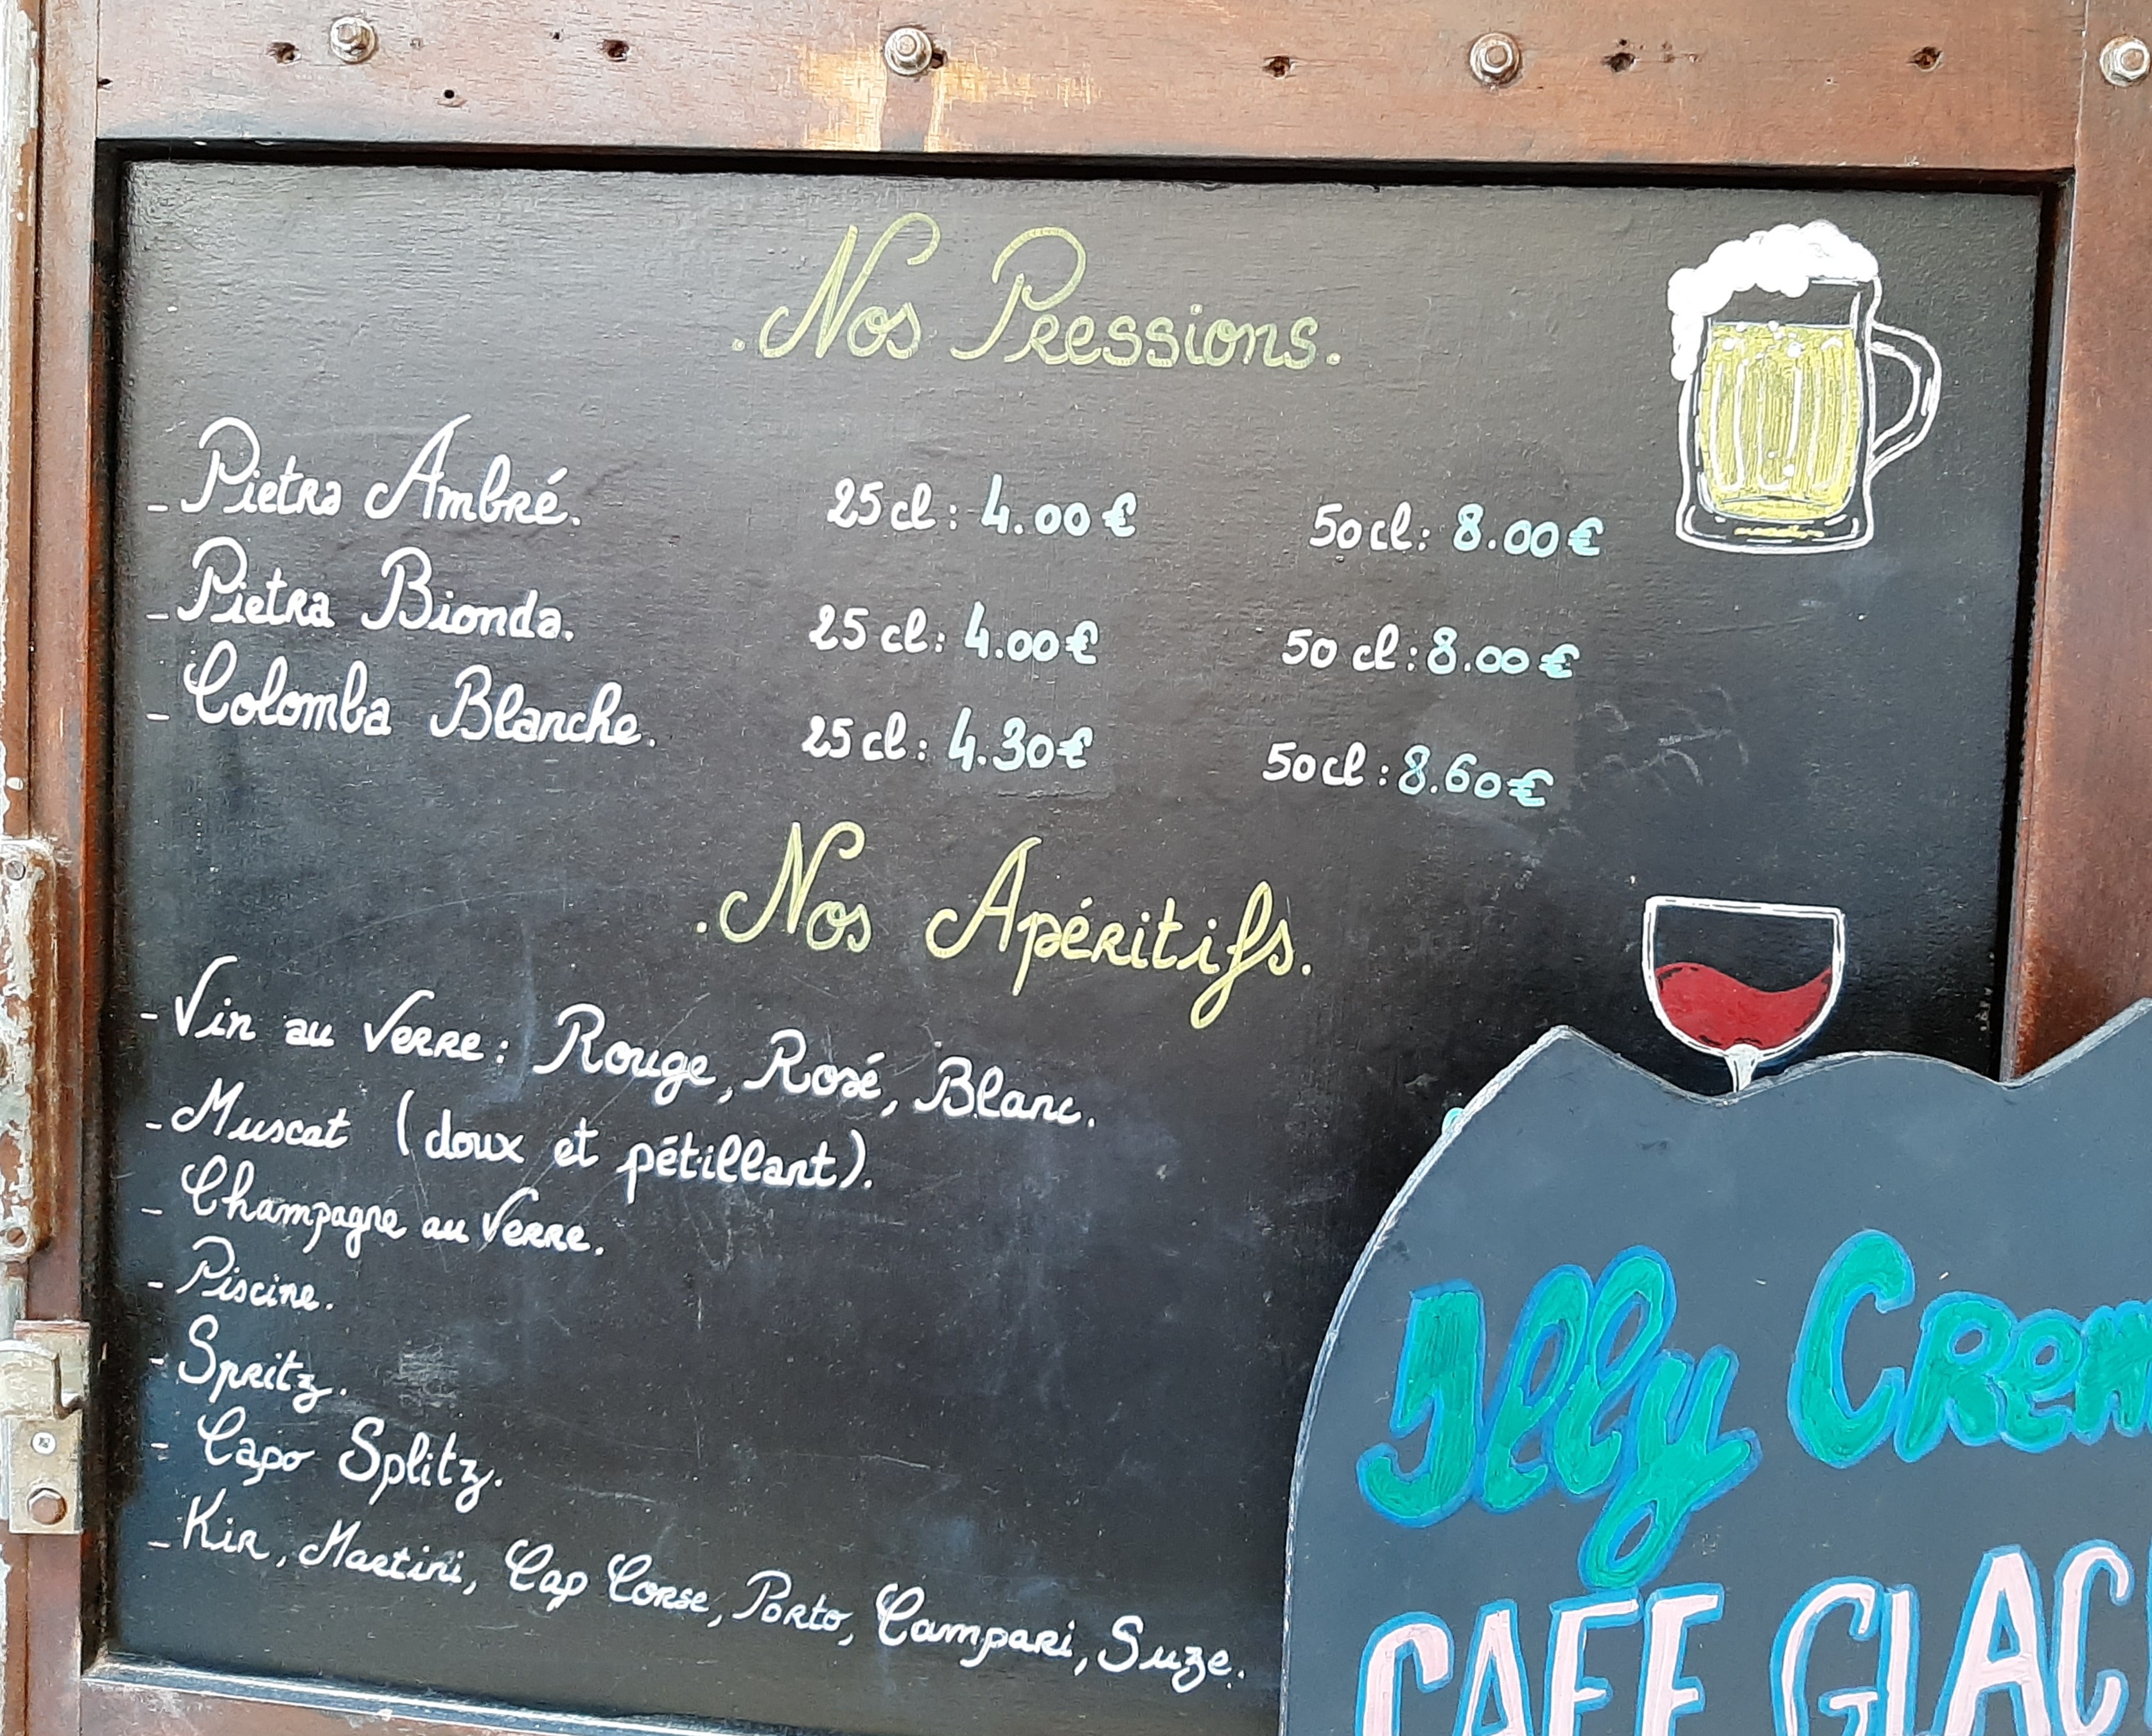 . Nos Pressions.
_ Pietra Ambré. 25 cl : 4.00 € 50 cl : 8.00 €
_ Pietra Bionda. 25 cl : 4.00 € 50 cl : 8.00 €
_ Colomba Blanche. 25 cl : 4.30 € 50 cl : 8.60 €
. Nos Apéritifs.
- Vin au Verre : Rouge, Rosé, Blanc.
- Muscat (doux et pétillant).
- Champagne au Verre.
- Piscine.
- Spritz.
- Capo Splitz.
- Kir, Martini, Cap Corse, Porto, Campari, Suze.
Illy Crem
CAFE GLAC